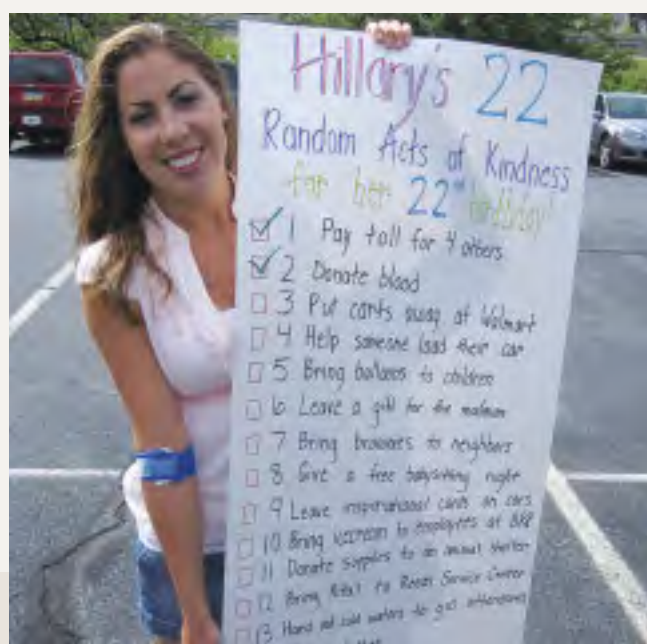 Hillary's 22
Random Acts of Kindness
for her 22nd birthday!
1 Pay toll for 4 others
2 Donate blood
3 Put carts away at Walmart
4 Help someone load their car
5 Bring balloons to children
6 Leave a gift for the mailman
7 Bring brownies to neighbors
8 Give a free babysitting night
9 Leave inspirational cards on cars
10 Bring icecream to employees at
11 Donate supplies to an animal shelter
12 Bring to Service Center
13 Hand out cold waters to gas attendants